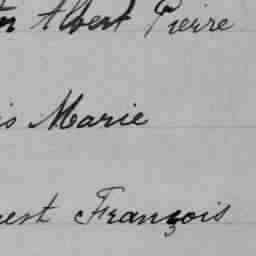 Albert Pierre
Marie
François